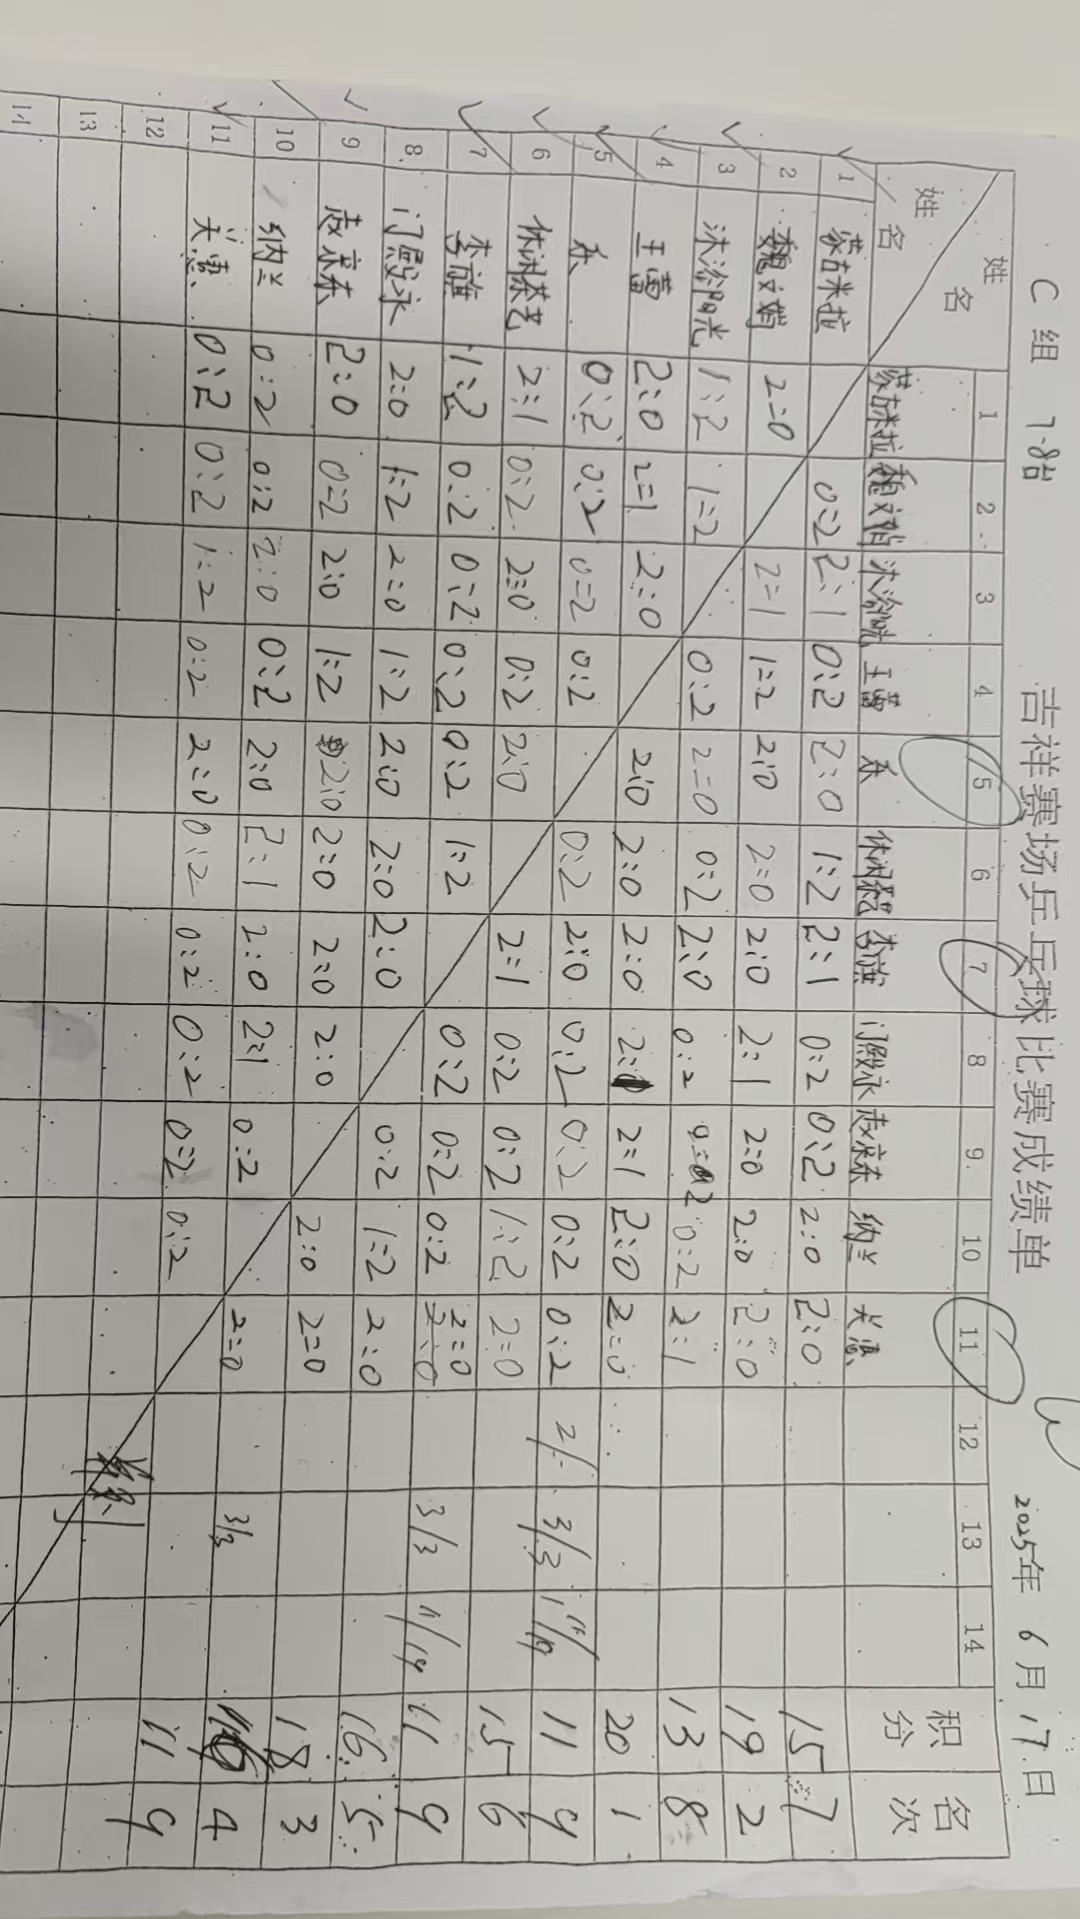 吉祥赛场乒乓球比赛成绩单
C 组 7-8台 2025年 6月 17日
姓名 姓名 1 2 3 4 5 6 7 8 9 10 11 12 13 14 积分 名次
蒙古米拉 魏文娟 沐浴阳光 王蕾 乔 休闲茶艺 李旗 门殿永 纳兰 关惠
1 蒙古米拉 0:2 2:1 0:2 2:0 1:2 2:1 0:2 0:2 2:0 2:0 15 7
2 魏文娟 2=0 2=1 1=2 2:0 2=0 2:0 2:1 2:0 2:0 2:0 19 2
3 沐浴阳光 1:2 1=2 0:2 2=0 0:2 2:0 0:2 0:2 2:1 13 8
4 王蕾 2:0 2=1 2:0 2:0 2:0 2:0 2:1 2:0 2=0 20 1
5 乔 0:2 0:2 0=2 0:2 0:2 2:0 0:2 0:2 0:2 0:2 2/- 3/3 11 9
6 休闲茶艺 2:1 0:2 2:0 0:2 2:0 2=1 0:2 0:2 1:2 2=0 15 6
7 李旗 1:2 0:2 0:2 0:2 0:2 1:2 0:2 0:2 0:2 2=0 3/3 11/14 11 9
8 门殿永 2:0 1:2 2=0 1:2 2:0 2:0 2:0 0:2 1:2 2=0 16 5
9 2:0 0=2 2:0 1:2 2:0 2=0 2:0 2:0 2:0 2=0 18 3
10 纳兰 0:2 0:2 2:0 0:2 2:0 2:1 2:0 2:1 0:2 2=0 3/3 16 4
11 关惠 0:2 0:2 1:2 0:2 2=0 0:2 0:2 0:2 0:2 0:2 11 9
12
13
14